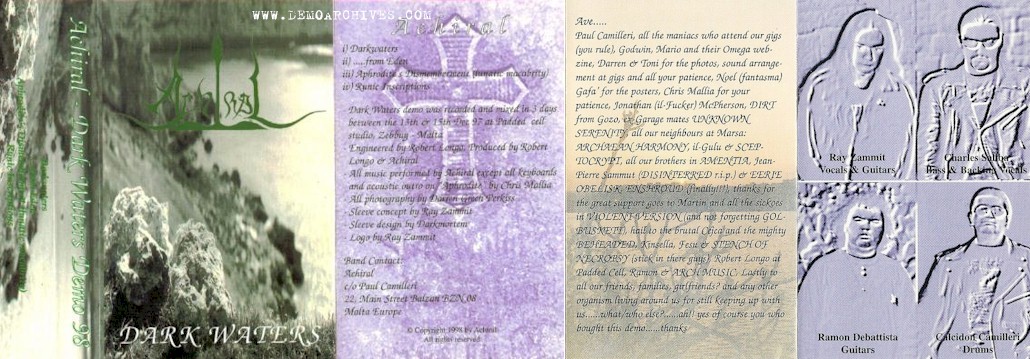 WWW.DEMOARCHIVES.COM
Achiral - Dark Waters Demo 98
Achiral
DARK WATERS
Achiral
i) Darkwaters
ii) .... from Eden
iii) Aphrodite's Dismemberment (lunatic macabrity)
iv) Runic Inscriptions
Dark Waters demo was recorded and mixed in 3 days
between the 13th & 15th Dec 97 at Padded cell
studio, Zebbug - Malta
Engineered by Robert Longo, Produced by Robert
Longo & Achiral
All music performed by Achiral except all keyboards
and acoustic outro on "Aphrodite" by Chris Mallia
All photography by Darren Green Perkiss
Sleeve concept by Ray Zammit
Sleeve design by Darkmortem
Logo by Ray Zammit
Band Contact:
Achiral
c/o Paul Camilleri
22, Main Street Balzan BZN 08
Malta Europe
© Copyright 1998 by Achiral
All rights reserved
Ave.....
Paul Camilleri, all the maniacs who attend our gigs
(you rule), Godwin, Mario and their Omega web-
zine, Darren & Toni for the photos, sound arrange-
ment at gigs and all your patience, Noel (fantasma)
Gafa' for the posters, Chris Mallia for your
patience, Jonathan (il-Fucker) McPherson, DIRT
from Gozo, & Garage mates UNKNOWN
SERENITY, all our neighbours at Marsa:
ARCHAEAN HARMONY, il-Gulu & SCEP-
TOCRYPT, all our brothers in AMENTIA, Jean-
Pierre Sammut (DISINTERRED r.i.p.) & EERIE
OBELISK, ENSHROUD (finally!!!), thanks for
the great support goes to Martin and all the sickoes
in VIOLENT VERSION (and not forgetting GOL-
hail to the brutal and the mighty
BEHEADED, Kinsella, Fesu & STENCH OF
NECROPSY (stick in there guys), Robert Longo at
Padded Cell, Ramon & ARCH MUSIC. Lastly to
all our friends, families, girlfriends? and any other
organism living around us for still keeping up with
us......what/who else?......ah!! yes of course you who
bought this demo......thanks
Ray Zammit
Vocals & Guitars
Charles Saliba
Bass & Backing Vocals
Ramon Debattista
Guitars
Calcidon Camilleri
Drums